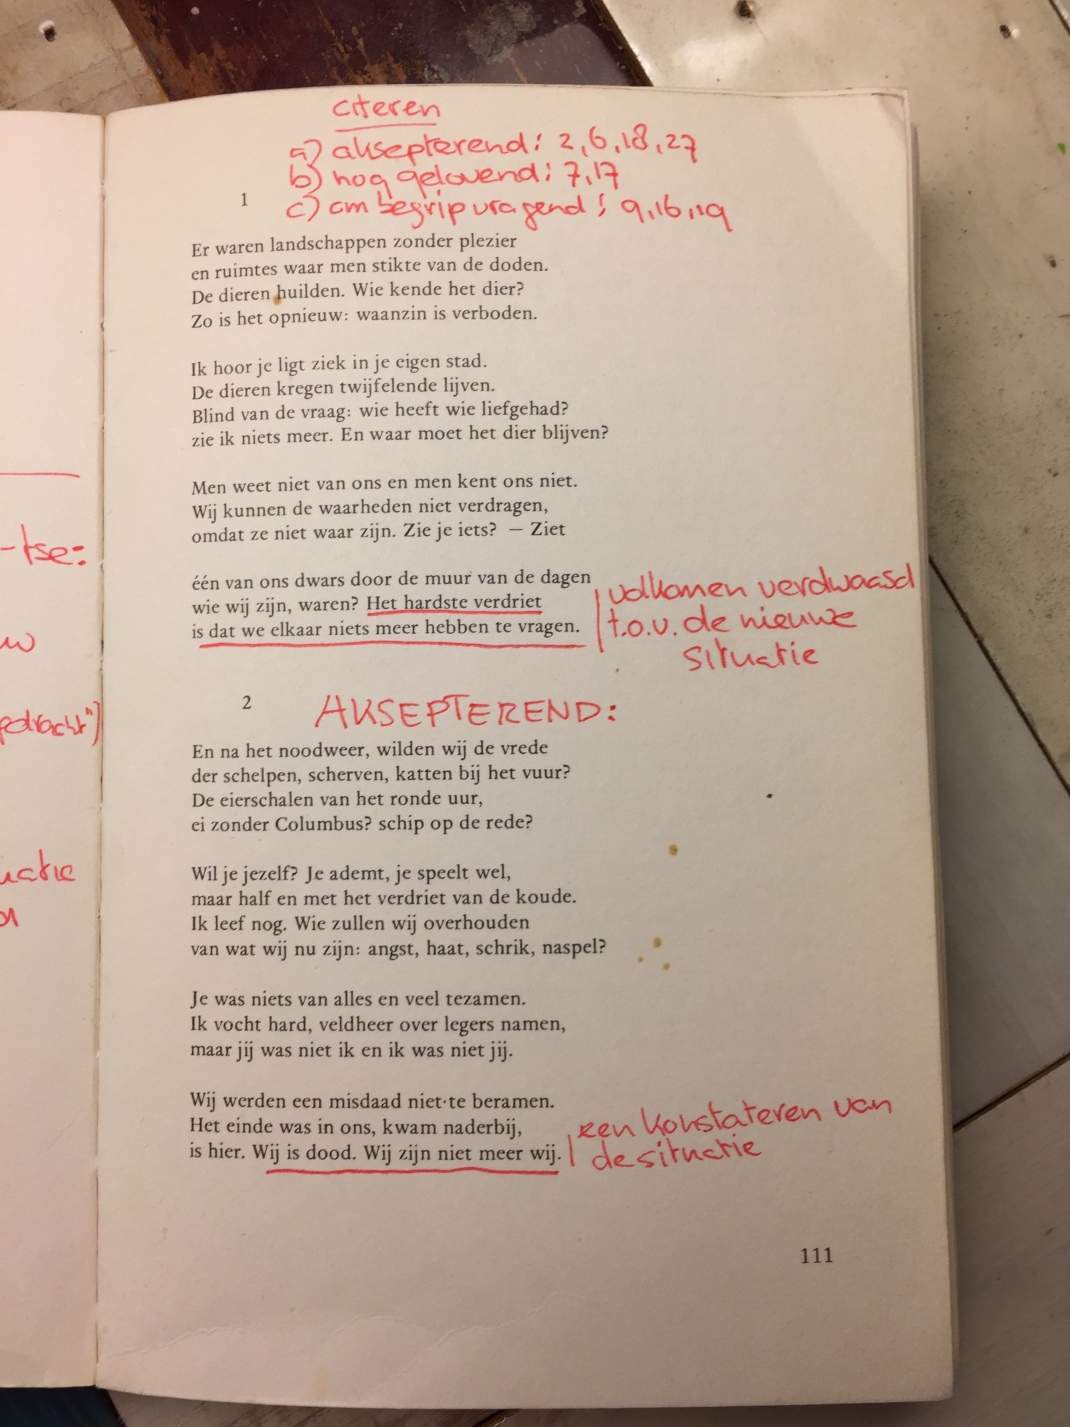 citeren
a) aksepterend: 2, 6, 18, 27
b) nog gelovend: 7, 17
c) om begrip vragend: 9, 16, 19
1
Er waren landschappen zonder plezier
en ruimtes waar men stikte van de doden.
De dieren huilden. Wie kende het dier?
Zo is het opnieuw: waanzin is verboden.
Ik hoor je ligt ziek in je eigen stad.
De dieren kregen twijfelende lijven.
Blind van de vraag: wie heeft wie liefgehad?
zie ik niets meer. En waar moet het dier blijven?
Men weet niet van ons en men kent ons niet.
Wij kunnen de waarheden niet verdragen,
omdat ze niet waar zijn. Zie je iets? — Ziet
één van ons dwars door de muur van de dagen
wie wij zijn, waren? Het hardste verdriet
is dat we elkaar niets meer hebben te vragen.
volkomen verdwaasd
t.o.v. de nieuwe
situatie
2
AKSEPTEREND:
En na het noodweer, wilden wij de vrede
der schelpen, scherven, katten bij het vuur?
De eierschalen van het ronde uur,
ei zonder Columbus? schip op de rede?
Wil je jezelf? Je ademt, je speelt wel,
maar half en met het verdriet van de koude.
Ik leef nog. Wie zullen wij overhouden
van wat wij nu zijn: angst, haat, schrik, naspel?
Je was niets van alles en veel tezamen.
Ik vocht hard, veldheer over legers namen,
maar jij was niet ik en ik was niet jij.
Wij werden een misdaad niet te beramen.
Het einde was in ons, kwam naderbij,
is hier. Wij is dood. Wij zijn niet meer wij.
een konstateren van
de situatie
111
-tse:
w
uatie